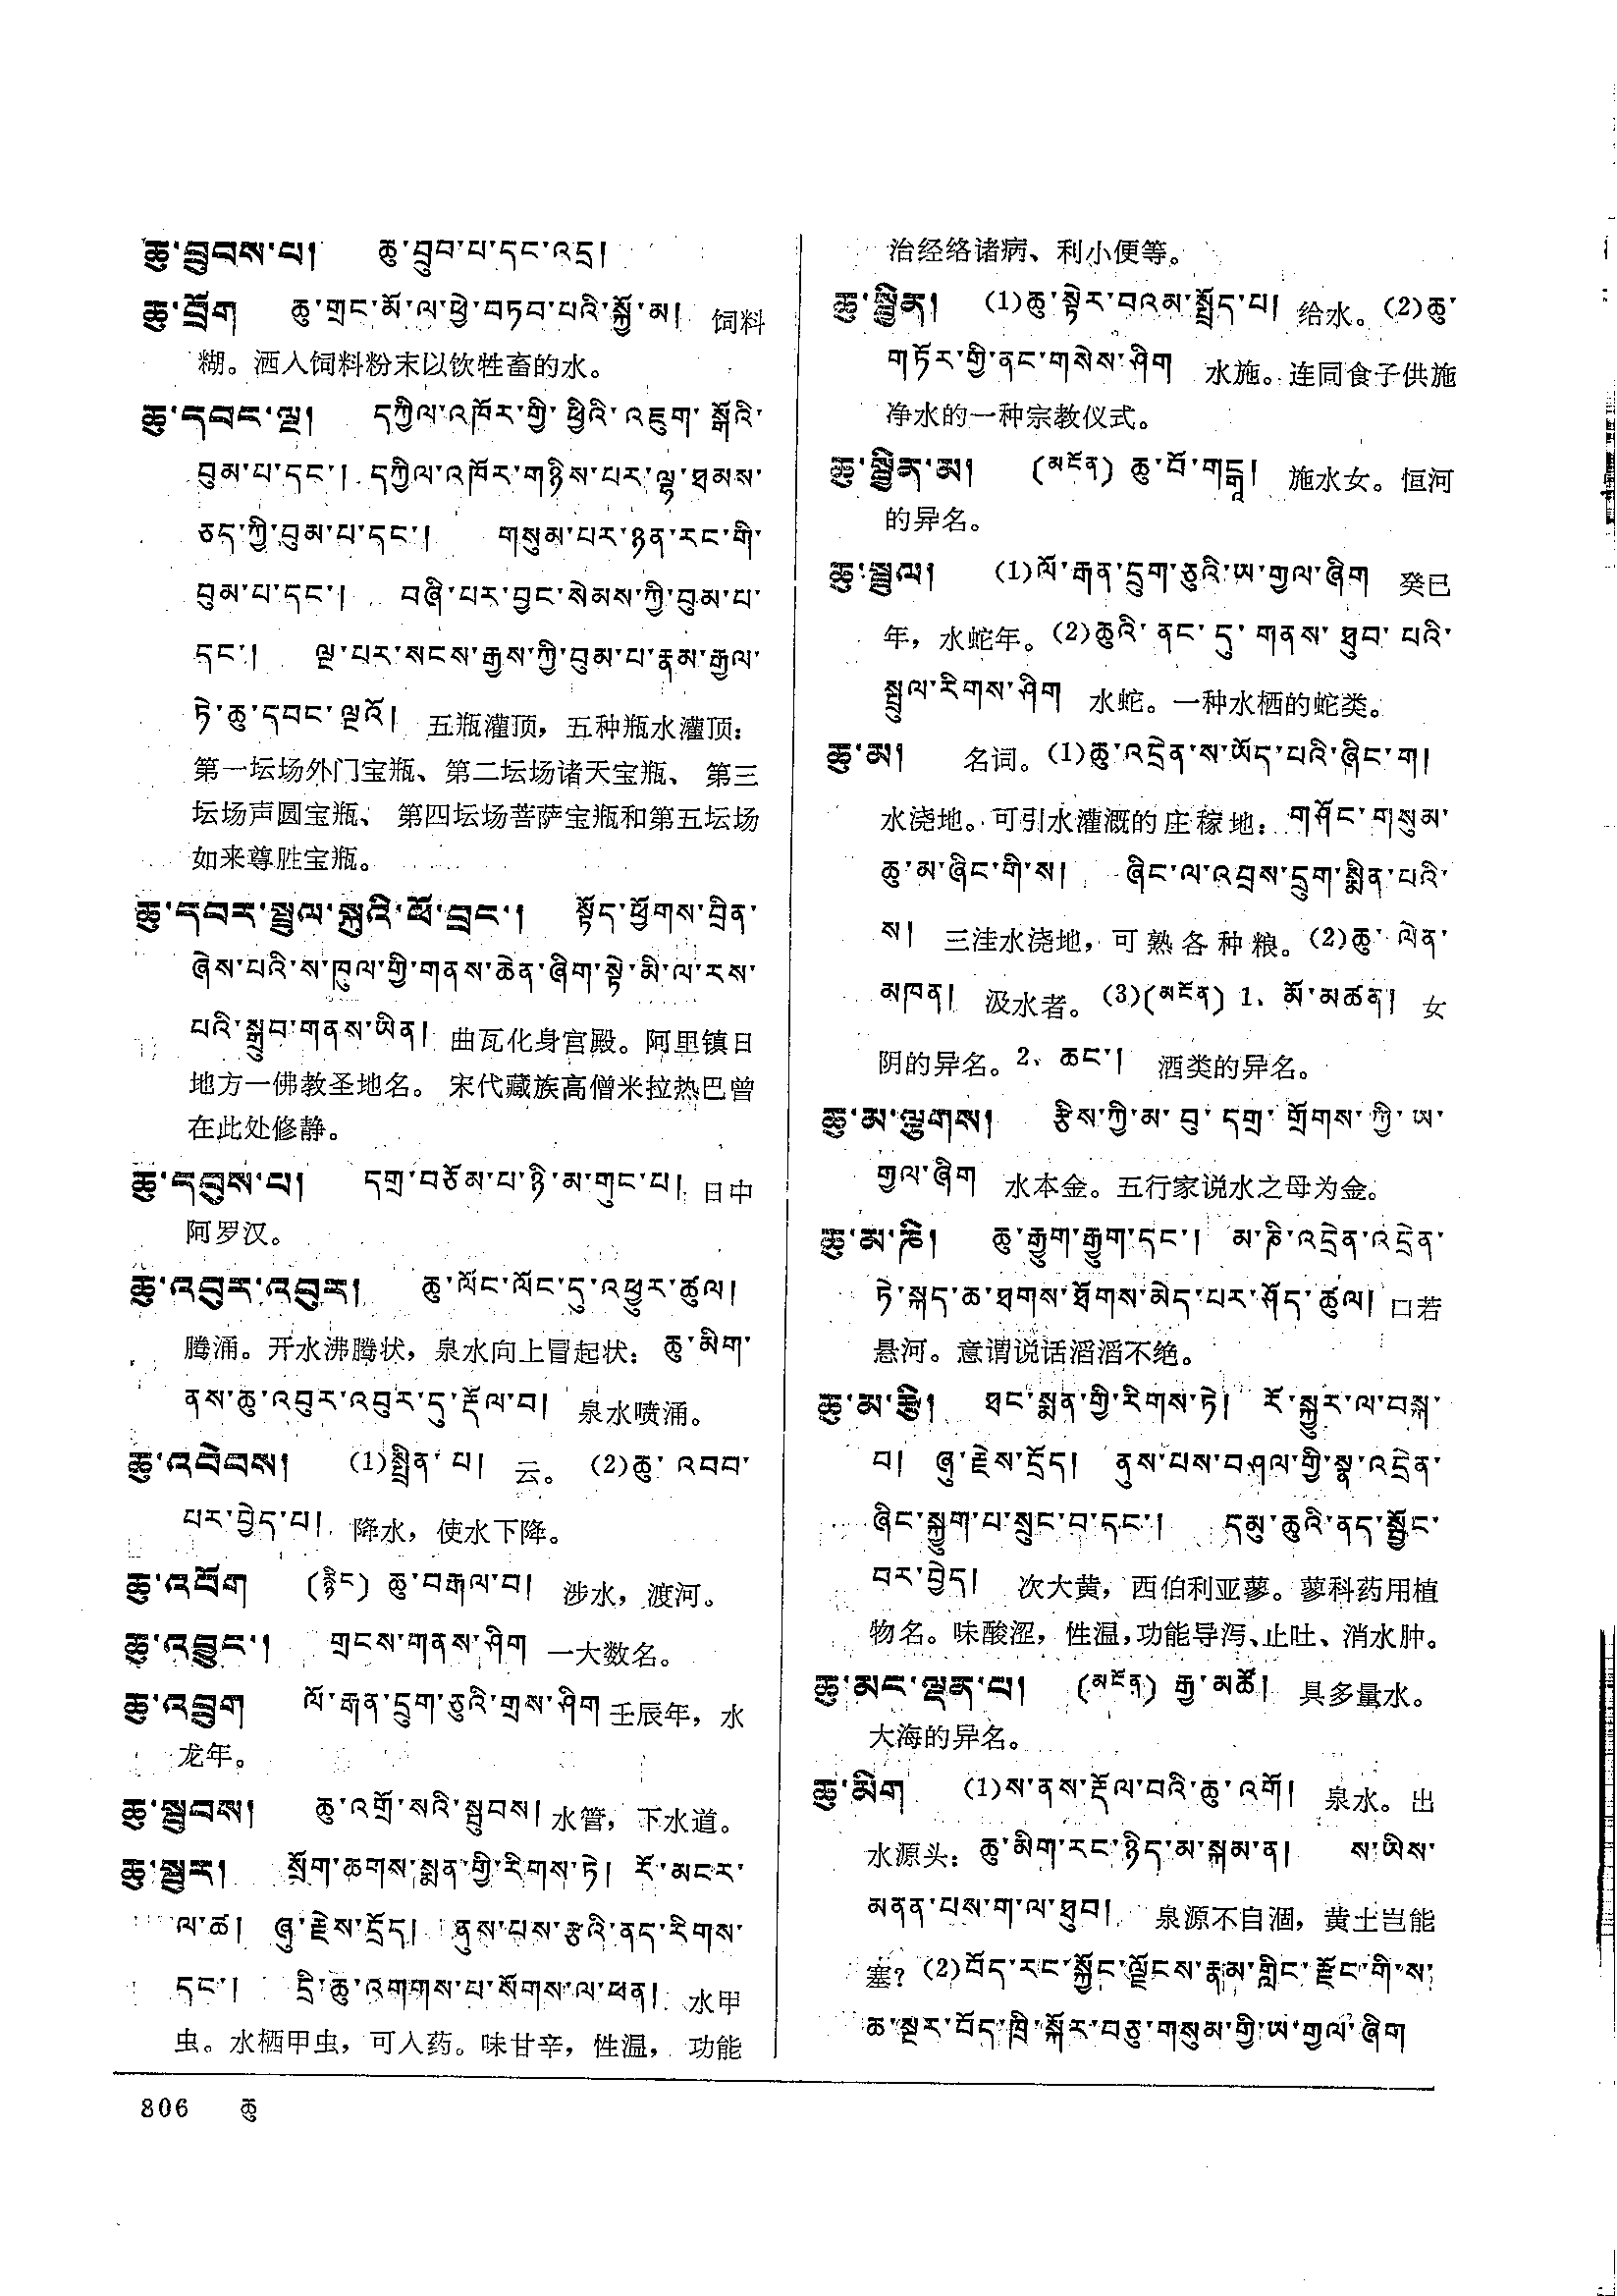 ཆུ་བྲུབས་པ། ཆུ་བྲུབ་པ་དང་འདྲ།
ཆུ་བྲོག ཆུ་གྲང་མོ་ལ་ཕྱེ་བཏབ་པའི་སྐྱོ་མ། 饲料
糊。洒入饲料粉末以饮牲畜的水。
ཆུ་དབང་ལྔ། དཀྱིལ་འཁོར་གྱི་ ཕྱིའི་འཇུག་ སྒོའི་
བུམ་པ་དང་། དཀྱིལ་འཁོར་གཉིས་པར་ལྷ་ཐམས་
ཅད་ཀྱི་བུམ་པ་དང་། གསུམ་པར་ཉན་རང་གི་
བུམ་པ་དང་། བཞི་པར་བྱང་སེམས་ཀྱི་བུམ་པ་
དང་། ལྔ་པར་སངས་རྒྱས་ཀྱི་བུམ་པ་རྣམ་རྒྱལ་
ཏེ་ཆུ་དབང་ལྔའོ། 五瓶灌顶，五种瓶水灌顶：
第一坛场外门宝瓶、第二坛场诸天宝瓶、第三
坛场声圆宝瓶、第四坛场菩萨宝瓶和第五坛场
如来尊胜宝瓶。
ཆུ་དབར་སྤྲུལ་སྐུའི་ཕོ་བྲང་། སྟོད་ཕྱོགས་བྲིན་
ཞེས་པའི་ས་ཁུལ་གྱི་གནས་ཆེན་ཞིག་སྟེ་མི་ལ་རས་
པའི་སྒྲུབ་གནས་ཡིན། 曲瓦化身宫殿。阿里镇日
地方一佛教圣地名。宋代藏族高僧米拉热巴曾
在此处修静。
ཆུ་དབུས་པ། དགྲ་བཅོམ་པ་ཉི་མ་གུང་པ། 日中
阿罗汉。
ཆུ་འབུར་འབུར། ཆུ་ལོང་ལོང་དུ་འཕྱུར་ཚུལ།
腾涌。开水沸腾状，泉水向上冒起状：ཆུ་མིག་
ནས་ཆུ་འབུར་འབུར་དུ་རྡོལ་བ། 泉水喷涌。
ཆུ་འབེབས། (1)སྤྲིན་པ། 云。(2)ཆུ་ འབབ་
པར་བྱེད་པ། 降水，使水下降。
ཆུ་འབོག (རྙིང) ཆུ་བརྒལ་བ། 涉水，渡河。
ཆུ་འབྱུང་། གྲངས་གནས་ཤིག 一大数名。
ཆུ་འབྲུག ལོ་རྒན་དྲུག་ཅུའི་གྲས་ཤིག 壬辰年，水
龙年。
ཆུ་སྦུབས། ཆུ་འགྲོ་སའི་སྦུབས། 水管，下水道。
ཆུ་སྦུར། སྲོག་ཆགས་སྨན་གྱི་རིགས་ཏེ། རོ་མངར་
ལ་ཚ། ཞུ་རྗེས་དྲོད། ནུས་པས་རྩའི་ནད་རིགས་
དང་། དྲི་ཆུ་འགགས་པ་སོགས་ལ་ཕན། 水甲
虫。水栖甲虫，可入药。味甘辛，性温，功能
治经络诸病、利小便等。
ཆུ་སྦྱིན། (1)ཆུ་སྟེར་བའམ་སྤྲོད་པ། 给水。(2)ཆུ་
གཏོར་གྱི་ནང་གསེས་ཤིག 水施。连同食子供施
净水的一种宗教仪式。
ཆུ་སྦྱིན་མ། (མངོན) ཆུ་བོ་གངྒཱ། 施水女。恒河
的异名。
ཆུ་སྦྲུལ། (1)ལོ་རྒན་དྲུག་ཅུའི་ཡ་གྱལ་ཞིག 癸巳
年，水蛇年。(2)ཆུའི་ ནང་དུ་ གནས་ ཐུབ་ པའི་
སྦྲུལ་རིགས་ཤིག 水蛇。一种水栖的蛇类。
ཆུ་མ། 名词。(1)ཆུ་འདྲེན་ས་ཡོད་པའི་ཞིང་ག།
水浇地。可引水灌溉的庄稼地：གཤོང་གསུམ་
ཆུ་མ་ཞིང་གི་ས། ཞིང་ལ་འབྲས་དྲུག་སྨིན་པའི་
ས། 三洼水浇地，可熟各种粮。(2)ཆུ་ ལེན་
མཁན། 汲水者。(3)(མངོན) 1、མོ་མཚན། 女
阴的异名。2、ཆང་། 酒类的异名。
ཆུ་མ་ལྕགས། རྩིས་ཀྱི་མ་ བུ་ དགྲ་ གྲོགས་ཀྱི་ ཡ་
གྱལ་ཞིག 水本金。五行家说水之母为金。
ཆུ་མ་ཎི། ཆུ་རྒྱུག་རྒྱུག་དང་། མ་ཎི་འདྲེན་འདྲེན་
ཏེ་སྐད་ཆ་ཐགས་ཐོགས་མེད་པར་ཤོད་ཚུལ། 口若
悬河。意谓说话滔滔不绝。
ཆུ་མ་རྩི། ཐང་སྨན་གྱི་རིགས་ཏེ། རོ་སྐྱུར་ལ་བསྐ་
བ། ཞུ་རྗེས་དྲོད། ནུས་པས་བཤལ་གྱི་སྣ་འདྲེན་
ཞིང་སྐྱུག་པ་སྲུང་བ་དང་། དམུ་ཆུའི་ནད་སྦྱོང་
བར་བྱེད། 次大黄，西伯利亚蓼。蓼科药用植
物名。味酸涩，性温，功能导泻、止吐、消水肿。
ཆུ་མང་ལྡན་པ། (མངོན) རྒྱ་མཚོ། 具多量水。
大海的异名。
ཆུ་མིག (1)ས་ནས་རྡོལ་བའི་ཆུ་འགོ། 泉水。出
水源头：ཆུ་མིག་རང་ཉིད་མ་སྐམ་ན། ས་ཡིས་
མནན་པས་ག་ལ་ཐུབ། 泉源不自涸，黄土岂能
塞？(2)བོད་རང་སྐྱོང་ལྗོངས་རྣམ་གླིང་རྫོང་གི་ས་
ཆ་སྔར་བོད་ཁྲི་སྐོར་བཅུ་གསུམ་གྱི་ཡ་གྱལ་ཞིག
806 ཆུ